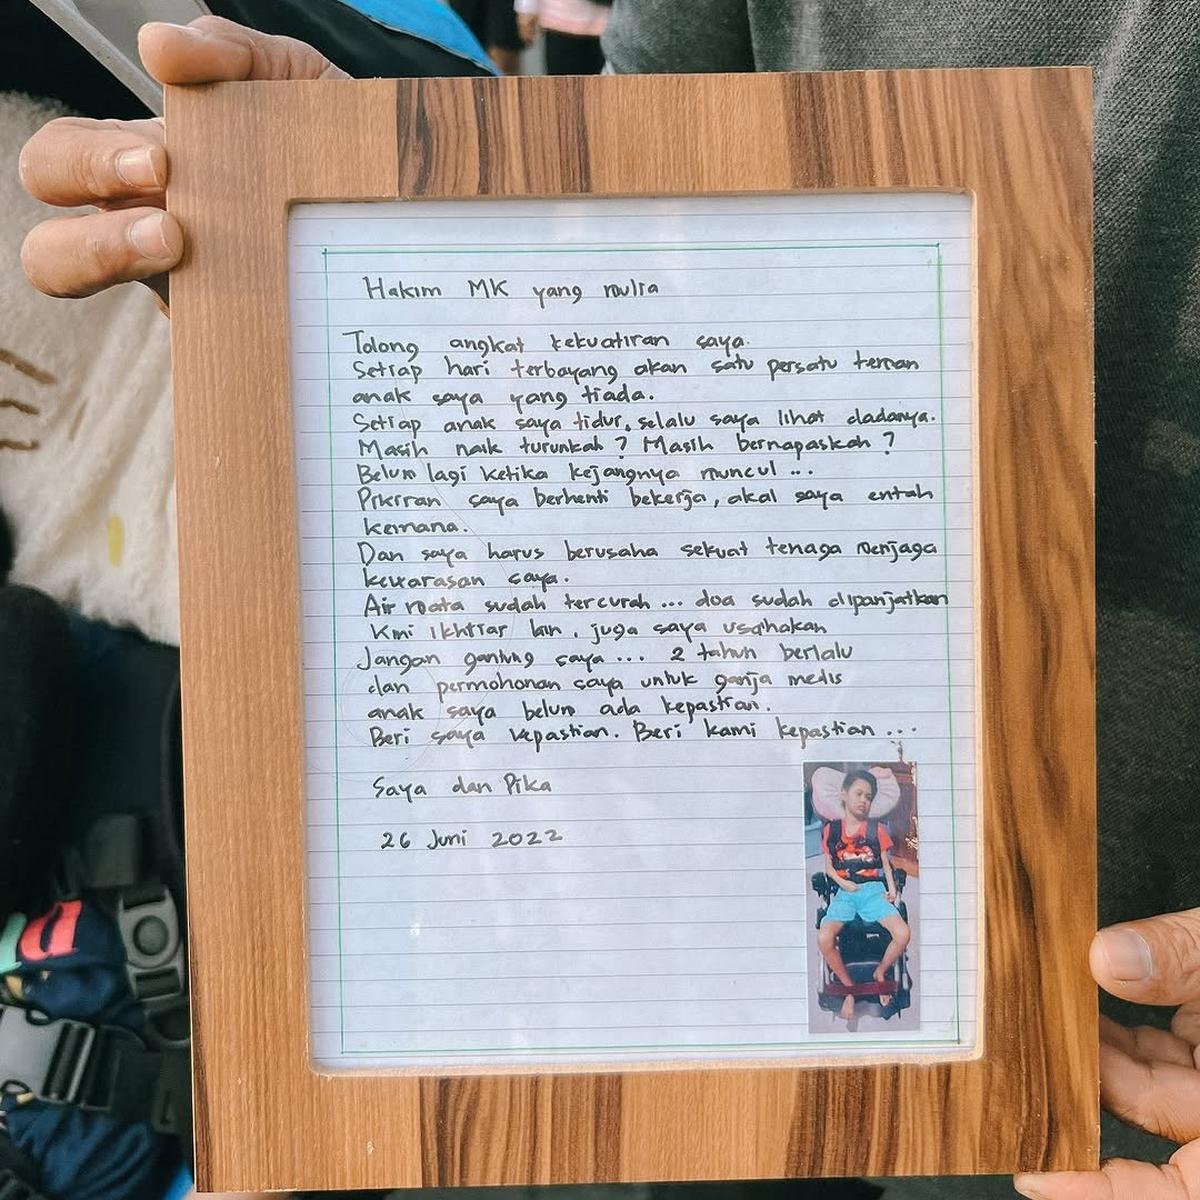 Hakim MK yang mulia
Tolong angkat kekuatiran saya.
Setiap hari terbayang akan satu persatu teman
anak saya yang tiada.
Setiap anak saya tidur, selalu saya lihat dadanya.
Masih naik turunkah? Masih bernapaskah?
Belum lagi ketika kejangnya muncul ...
Pikiran saya berhenti bekerja, akal saya entah
kemana.
Dan saya harus berusaha sekuat tenaga menjaga
kewarasan saya.
Air mata sudah tercurah ... doa sudah dipanjatkan
Kini ikhtiar lain, juga saya usahakan
Jangan gantung saya ... 2 tahun berlalu
dan permohonan saya untuk ganja medis
anak saya belum ada kepastian.
Beri saya kepastian. Beri kami kepastian ...
Saya dan Pika
26 Juni 2022